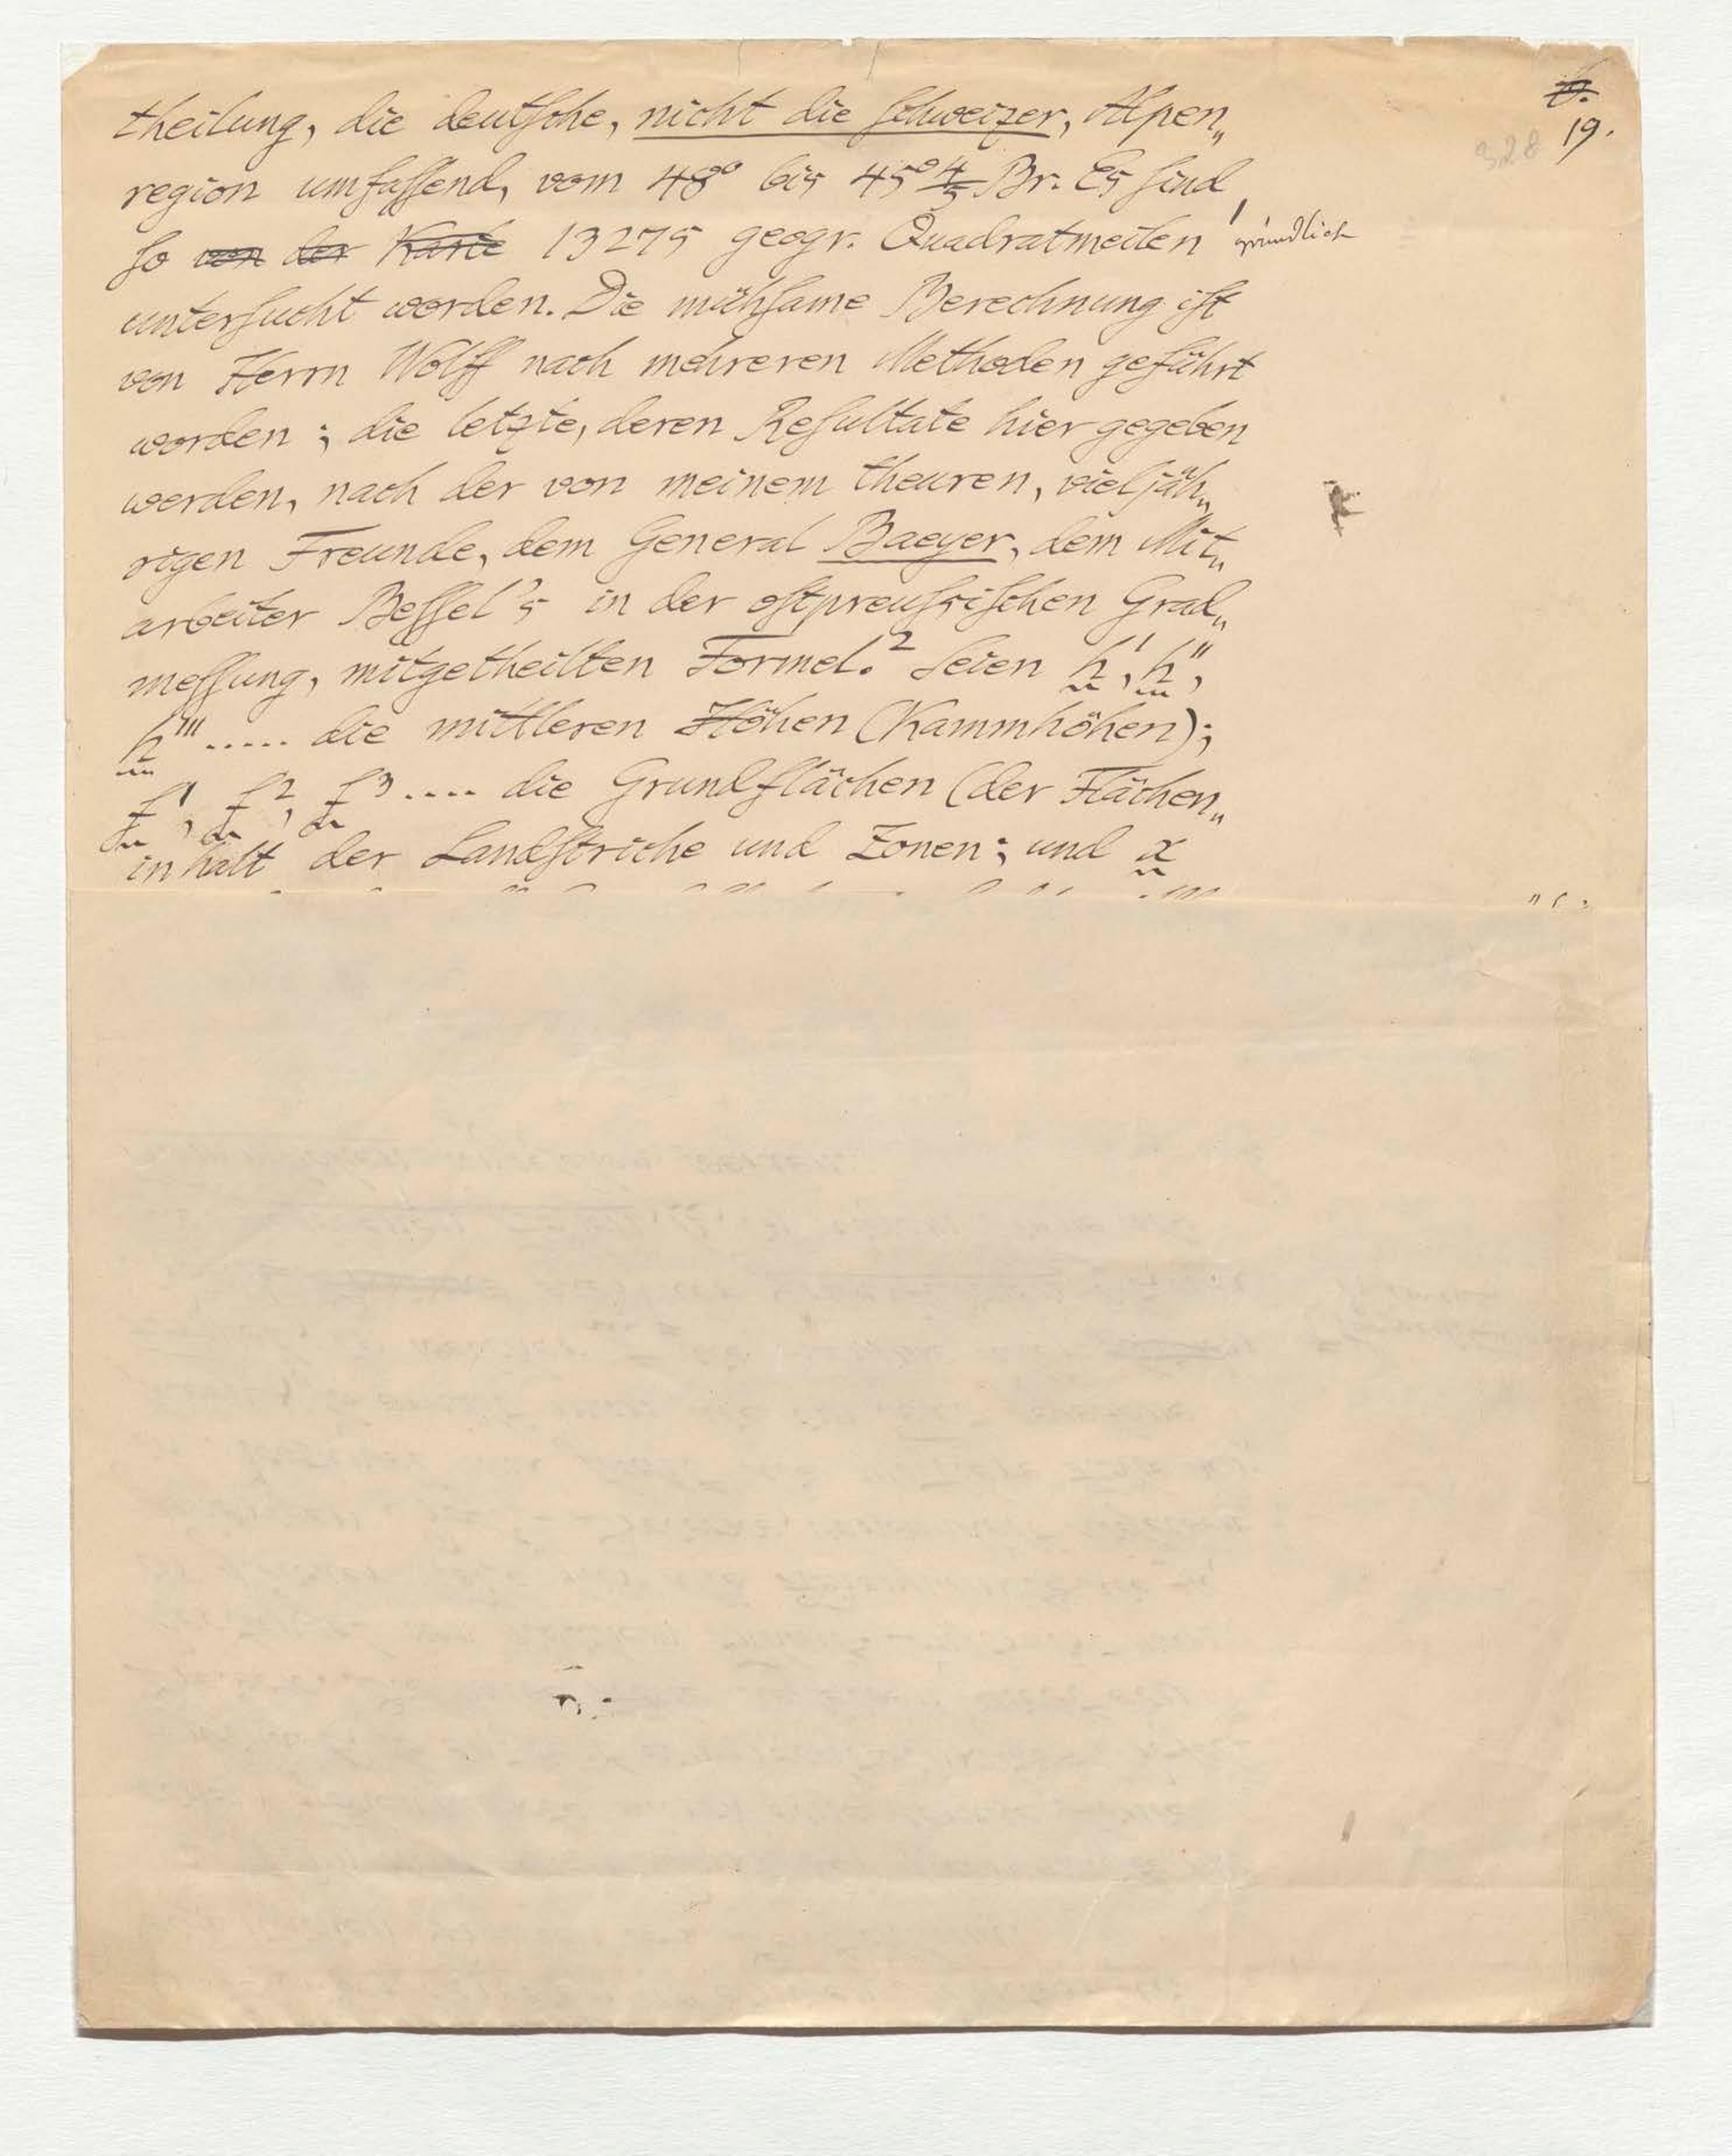 6.
19.
328
theilung, die deutsche, nicht die Schweizer, Alpen„
region umfassend, vom 48° bis 45°4/5 Br. Es sind
so von der Karte 13275 geogr. Quadratmeilen gründlich
untersucht worden. Die mühsame Berechnung ist
von Herrn Wolff nach mehreren Methoden geführt
worden; die letzte, deren Resultate hier gegeben
werden, nach der von meinem theuren, vieljäh„
rigen Freunde, dem General Baeyer, dem Mit„
arbeiter Bessel's in der ostpreussischen Grad„
messung, mitgetheilten Formel.² Seien h', h'',
h''' ..... die mittleren Höhen (Kammhöhen);
f¹, f², f³ .... die Grundflächen (der Flächen„
inhalt der Landstriche und Zonen; und x